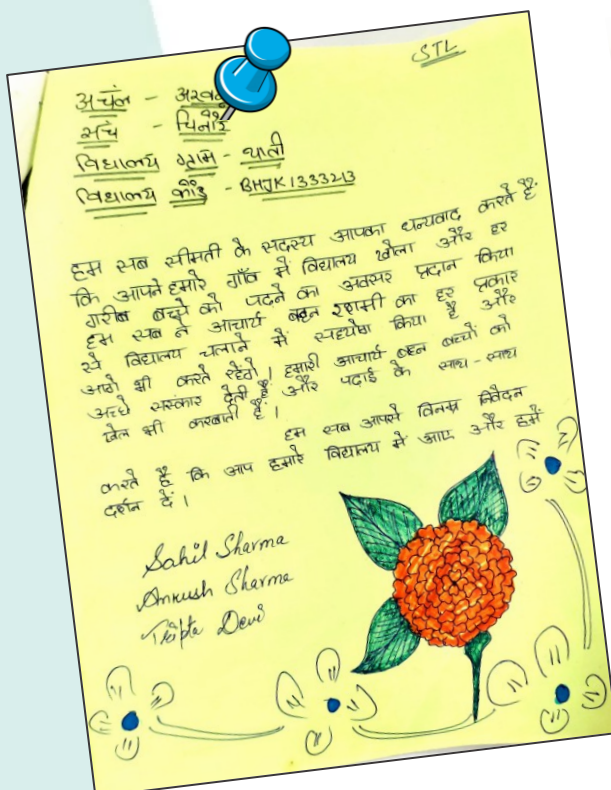 STL
अचंल - अखनू
संच - चिनारं
विद्यालय ग्राम - थाती
विद्यालय कोड - BHJK1333213
हम सब सीमती के सदस्य आपका धन्यवाद करते हैं
कि आपने हमारे गाँव में विद्यालय खोला और हर
गरीब बच्चे को पढने का अवसर प्रदान किया
हम सब ने आचार्य बहन रश्मी का हर प्रकार
से विद्यालय चलाने में सहयोग किया है और
आगे भी करते रहेंगे। हमारी आचार्य बहन बच्चों को
अच्छे संस्कार देती है और पढाई के साथ-साथ
खेल भी करवाती है।
हम सब आपसे विनम्र निवेदन
करते है कि आप हमारे विद्यालय में आए और हमें
दर्शन दें।
Sahil Sharma
Ankush Sharma
Tripta Devi